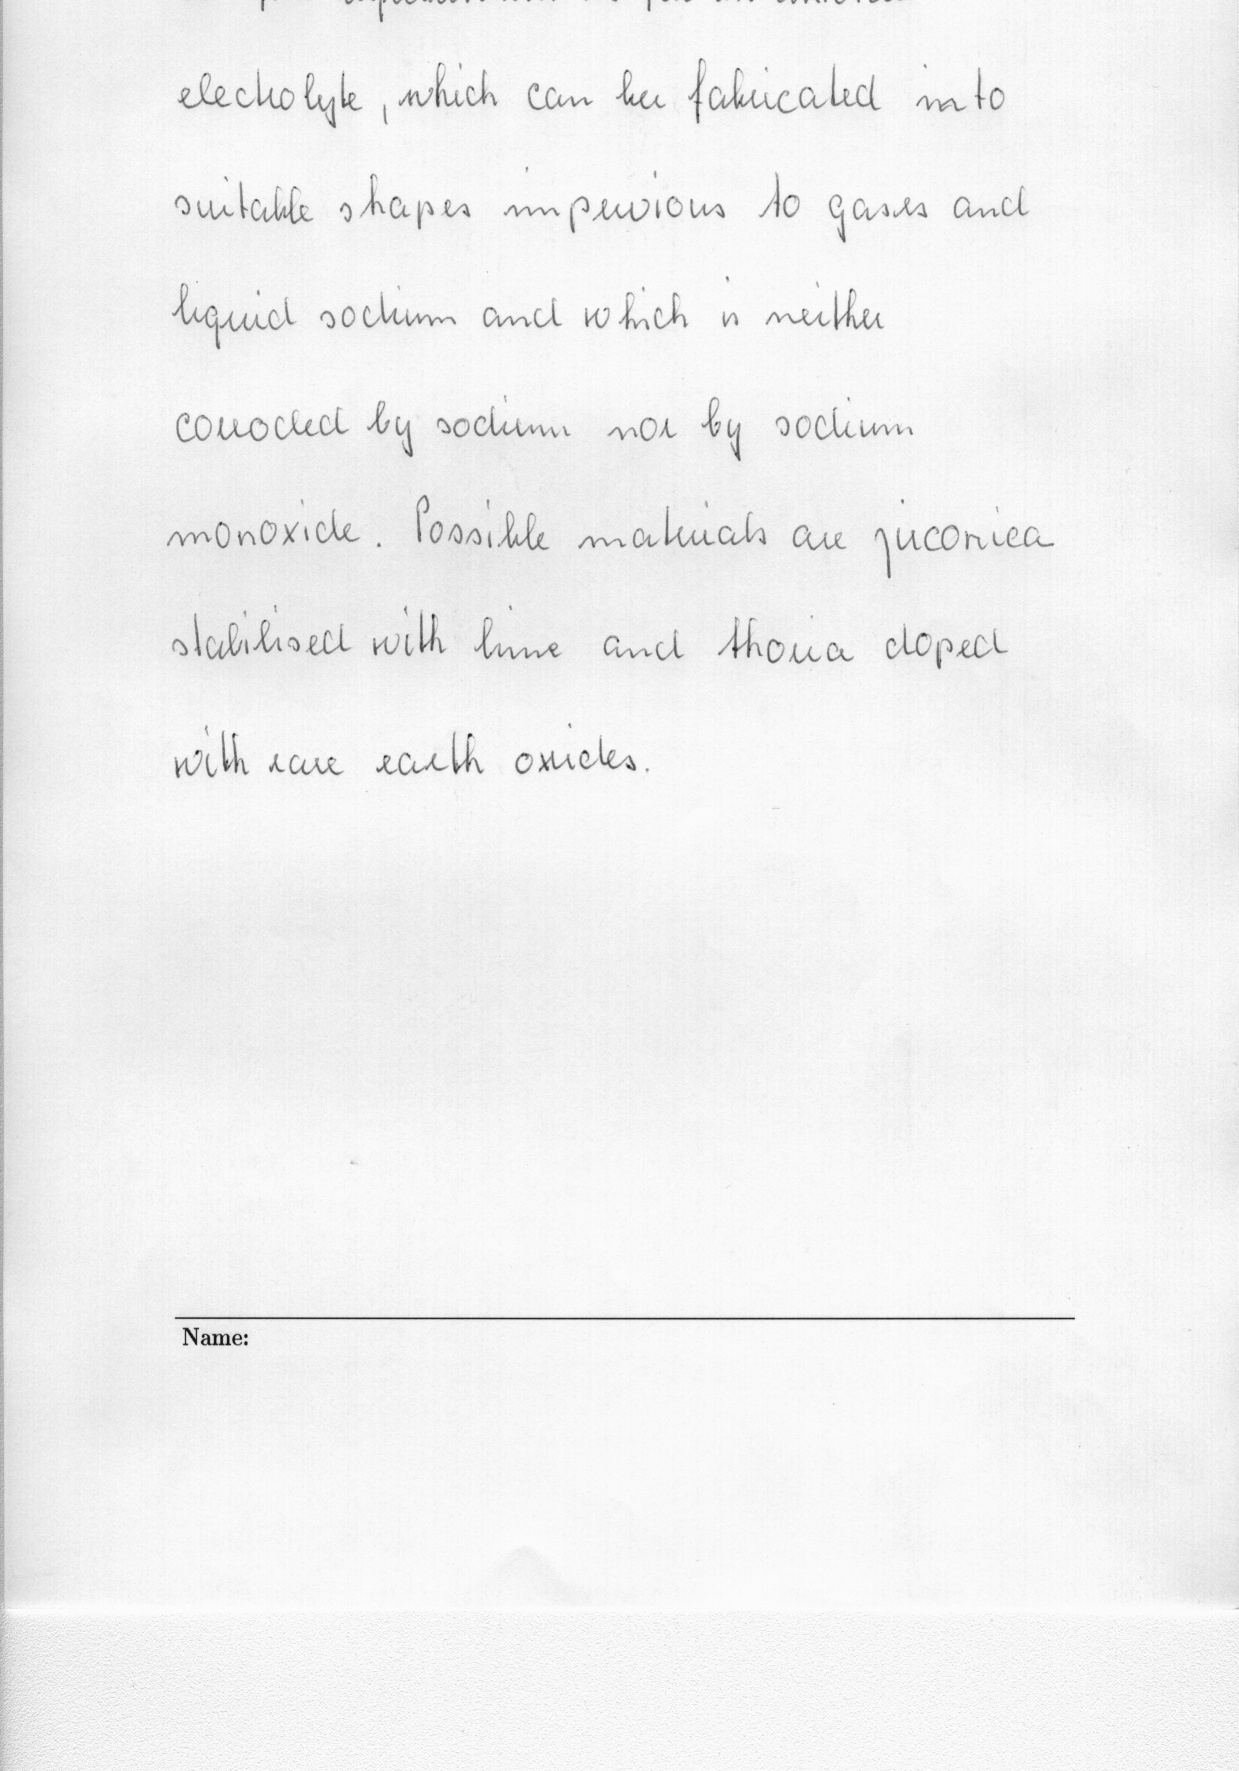 electrolyte, which can be fabricated into
suitable shapes impervious to gases and
liquid sodium and which is neither
corroded by sodium nor by sodium
monoxide. Possible materials are zirconica
stabilised with lime and thoria doped
with rare earth oxides.
Name: